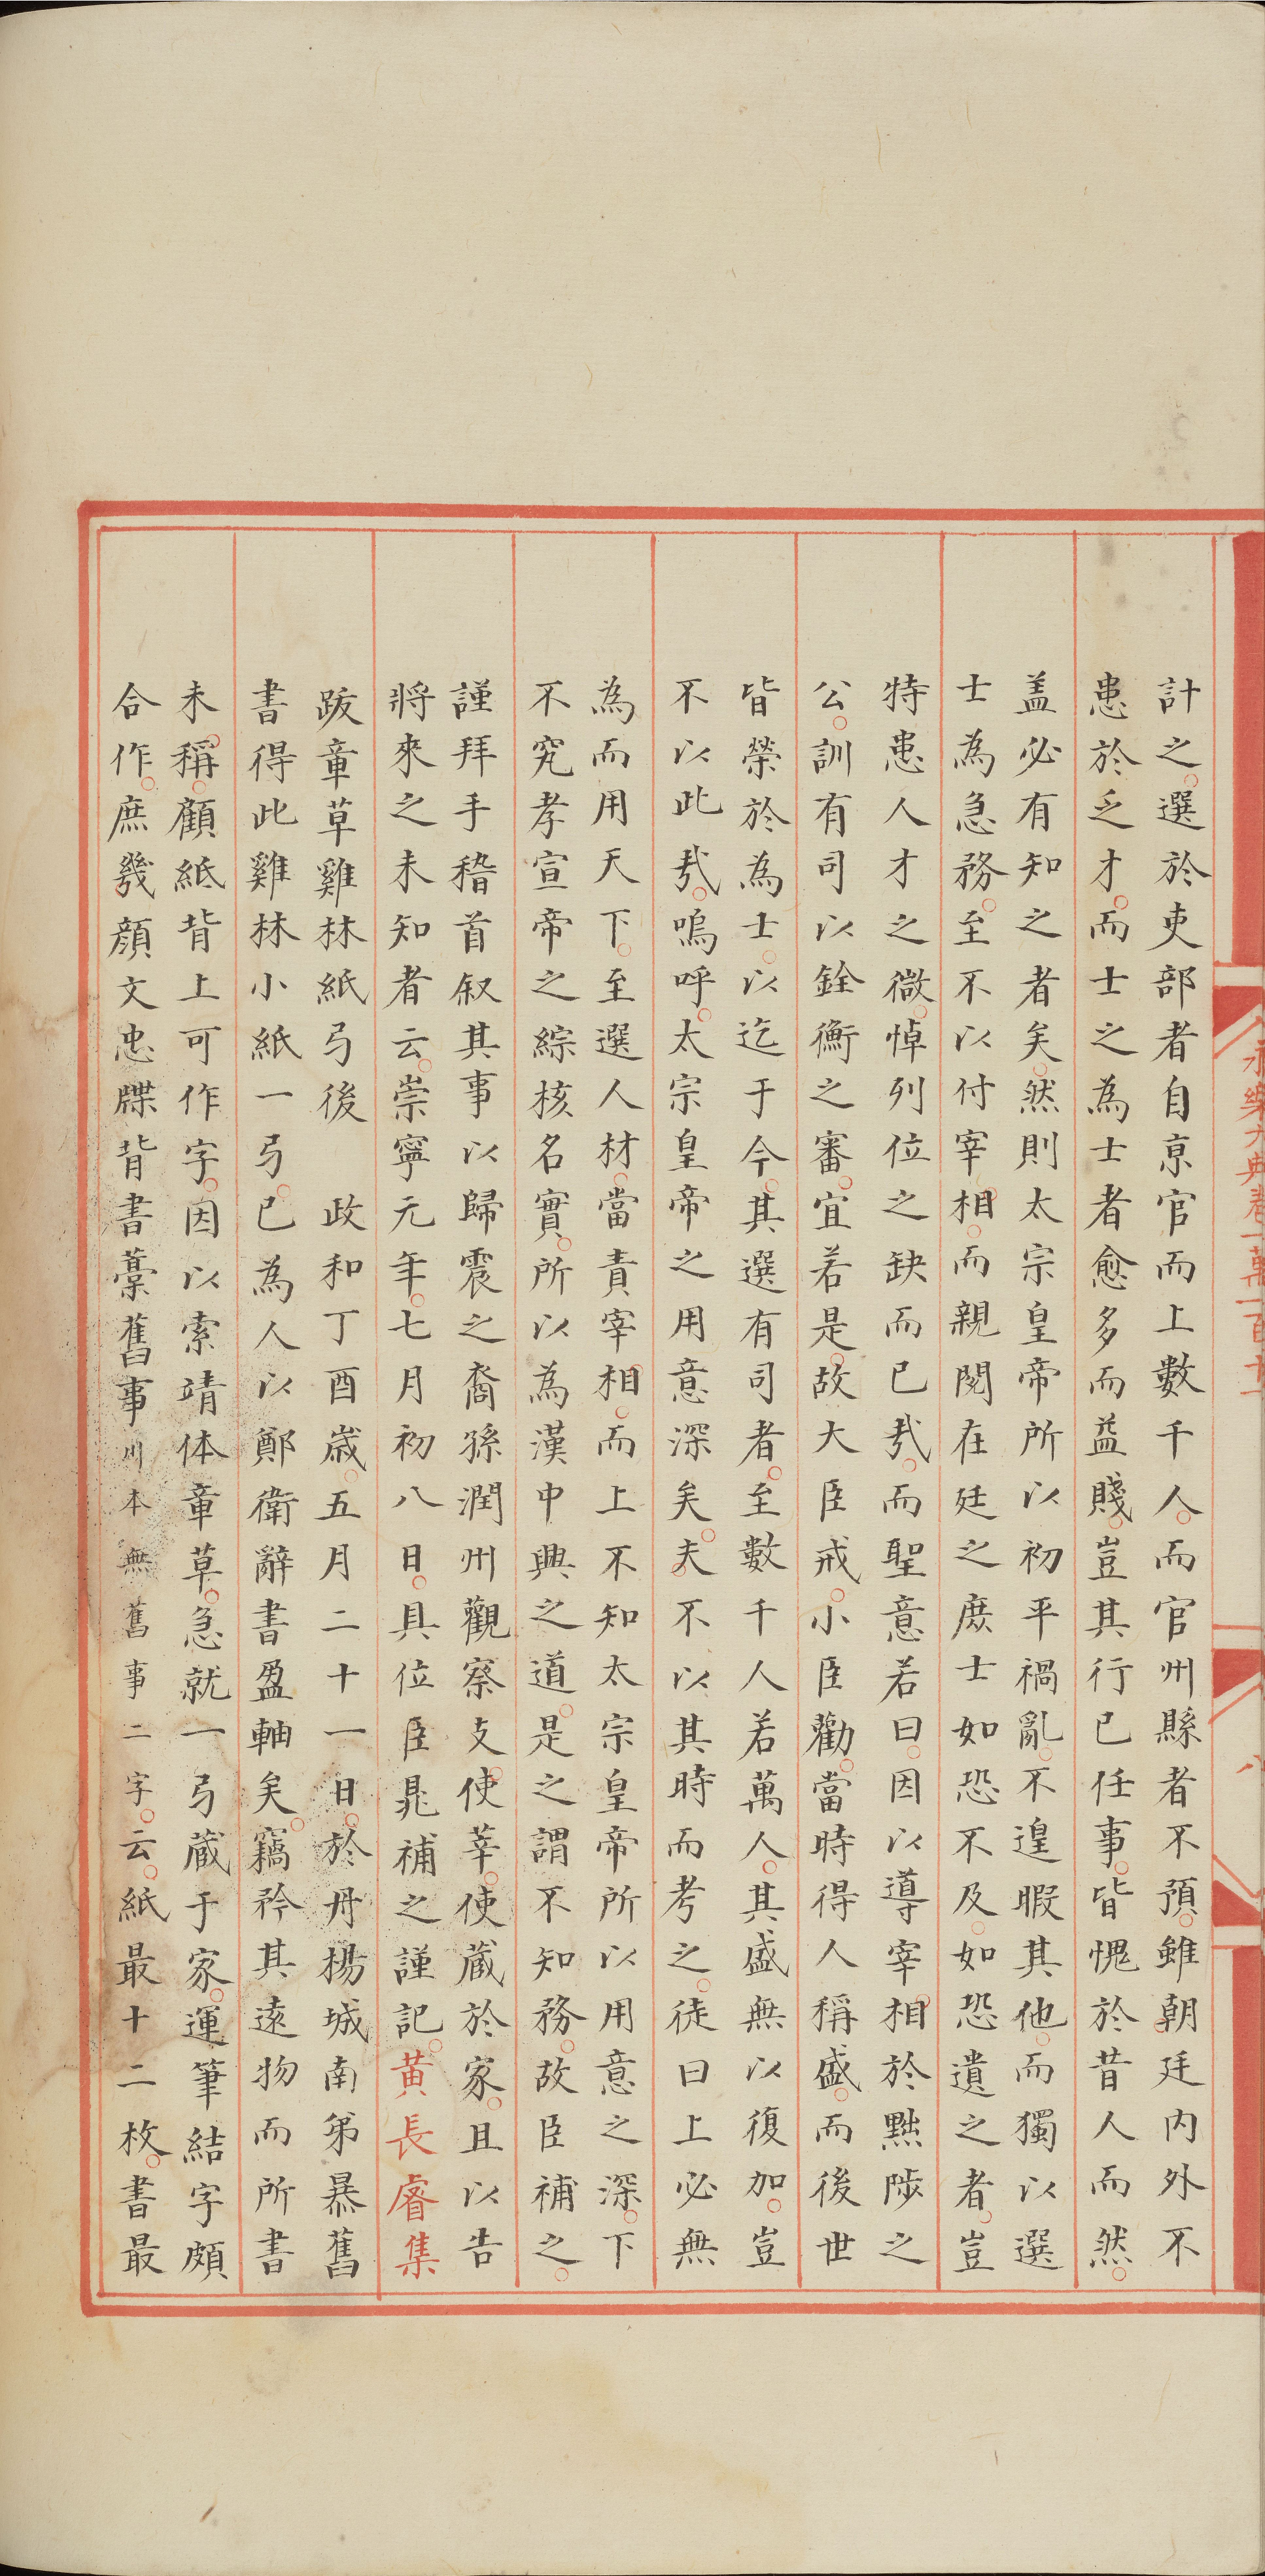 永樂大典卷一萬一百十
八
計之選於吏部者自京官而上數千人而官州縣者不預雖朝廷内外不
患於乏才而士之為士者愈多而益賤豈其行已任事皆愧於昔人而然
盖必有知之者矣然則太宗皇帝所以初平禍亂不遑暇其他而獨以選
士為急務至不以付宰相而親閱在廷之庶士如恐不及如恐遺之者豈
特患人才之微悼列位之缺而已㢤而聖意若曰因以導宰相於黜陟之
公訓有司以銓衡之審宜若是故大臣戒小臣勸當時得人稱盛而後世
皆榮於為士以迄于今其選有司者至數千人若萬人其盛無以復加豈
不以此㢤嗚呼太宗皇帝之用意深矣夫不以其時而考之徒曰上必無
為而用天下至選人材當責宰相而上不知太宗皇帝所以用意之深下
不究孝宣帝之綜核名實所以為漢中興之道是之謂不知務故臣補之
謹拜手稽首叙其事以歸震之裔孫潤州觀察支使莘使藏於家且以告
將來之未知者云崇寧元年七月初八日具位臣晁補之謹記黄長睿集
跋章草雞林紙弓後 政和丁酉歲五月二十一日於丹楊城南弟暴舊
書得此雞林小紙一弓已為人以鄭衛辭書盈軸矣竊矜其遠物而所書
未稱顧紙背上可作字因以索靖体章草急就一弓藏于家運筆結字頗
合作庶幾顔文忠牒背書藁舊事川本無舊事二字云紙最十二枚書最